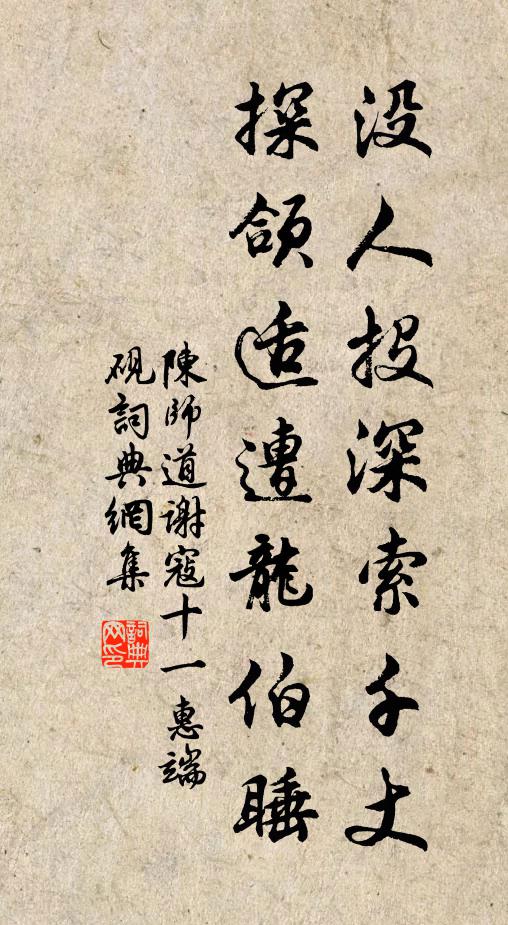 没人投深索千丈
探頷适遭龍伯睡
陳師道谢寇十一惠端
砚詞典網集
詞典网印